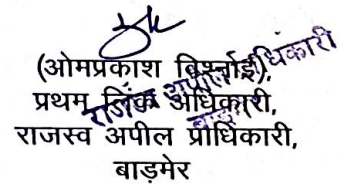 (ओमप्रकाश विश्नोई),
प्रथम लिंक अधिकारी,
राजस्व अपील प्राधिकारी,
बाड़मेर
राजस्व अपील अधिकारी
बाड़मेर